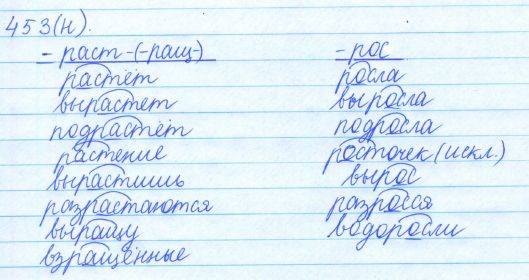 453(н).
-раст-(-ращ-) -рос
растёт росла
вырастет выросла
подрастёт подросла
растение росточек (искл.)
вырастишь вырос
разрастаются разросся
выращу водоросли
взращённые